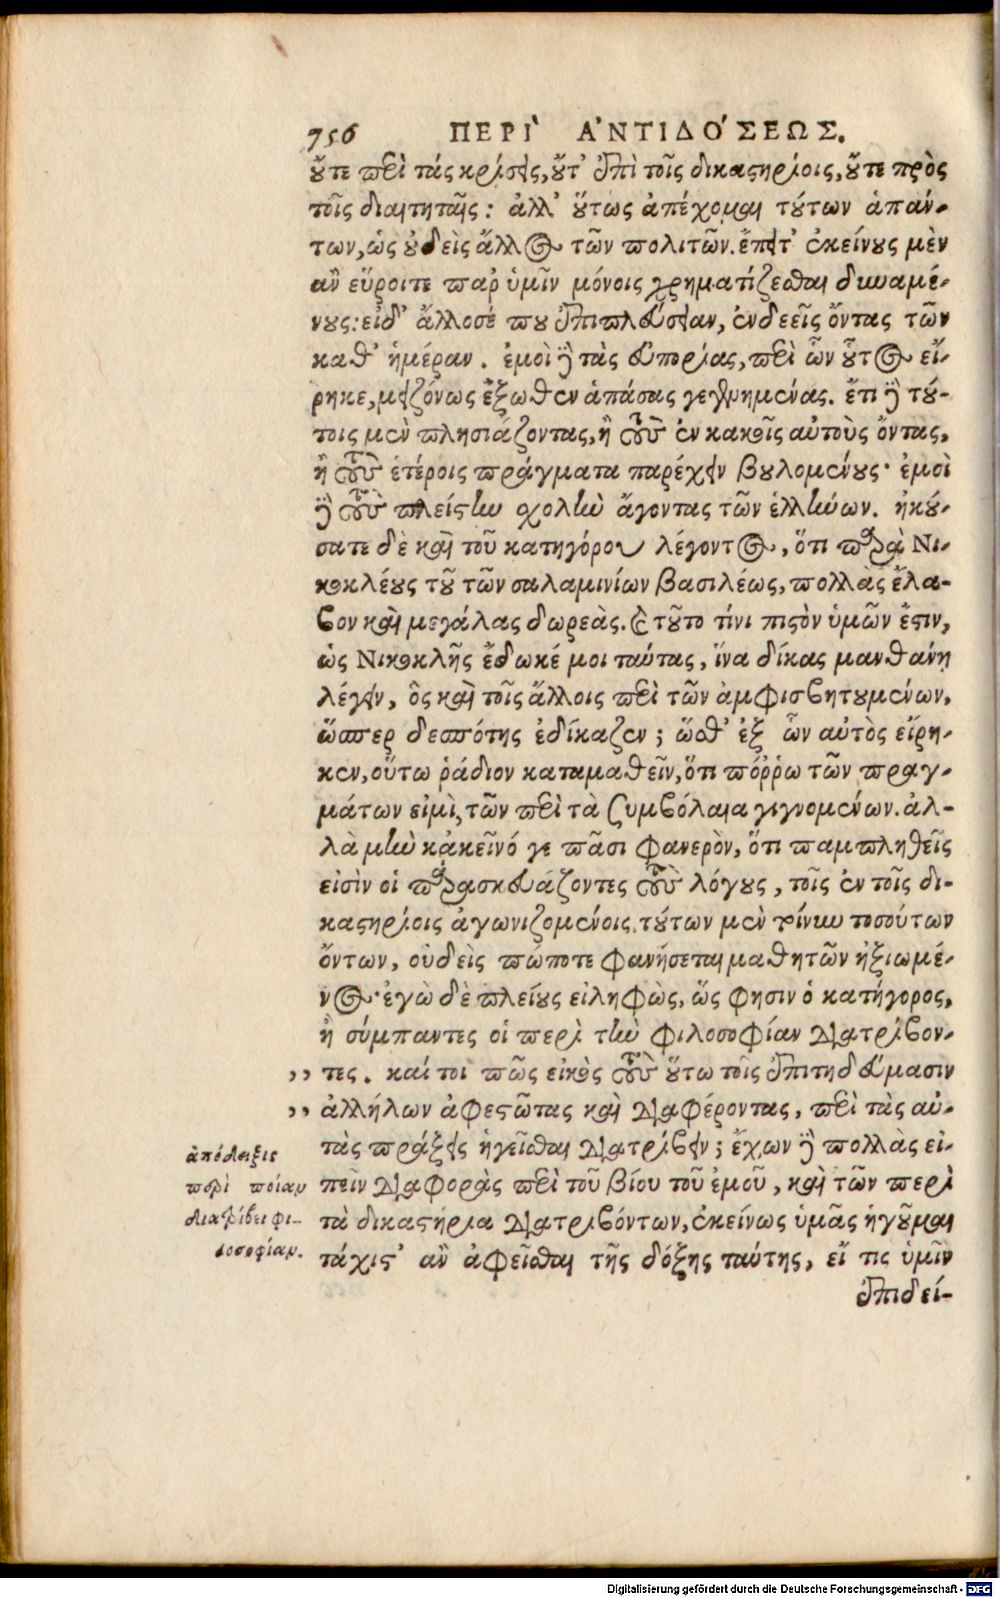 756 ΠΕΡῚ ἈΝΤΙΔΌΣΕΩΣ.
οὔτε περὶ τὰς κρίσεις, οὔτ' ἐπὶ τοῖς δικαστηρίοις, οὔτε πρὸς
τοῖς διαιτηταῖς: ἀλλ' οὕτως ἀπέχομαι τούτων ἁπάν-
των, ὡς οὐδεὶς ἄλλος τῶν πολιτῶν. ἔπειτ' ἐκείνους μὲν
ἂν εὕροιτε παρ' ὑμῖν μόνοις χρηματίζεσθαι δυναμέ-
νους: εἰ δ' ἄλλοσέ που ἐπιπλεύσειαν, ἐνδεεῖς ὄντας τῶν
καθ' ἡμέραν. ἐμοὶ δὲ τὰς εὐπορίας, περὶ ὧν οὗτος εἴ-
ρηκε, μειζόνως ἔξωθεν ἁπάσας γεγενημένας. ἔτι δὲ τού-
τοις μὲν πλησιάζοντας, ἢ τοὺς ἐν κακοῖς αὐτοὺς ὄντας,
ἢ τοὺς ἑτέροις πράγματα παρέχειν βουλομένους· ἐμοὶ
δὲ τοὺς πλείστην σχολὴν ἄγοντας τῶν ἑλλήνων. ἠκού-
σατε δὲ καὶ τοῦ κατηγόρου λέγοντος, ὅτι παρὰ Νι-
κοκλέους τοῦ τῶν σαλαμινίων βασιλέως, πολλὰς ἔλα-
βον καὶ μεγάλας δωρεάς. καὶ τοῦτο τίνι πιστὸν ὑμῶν ἔστιν,
ὡς Νικοκλῆς ἔδωκέ μοι ταύτας, ἵνα δίκας μανθάνῃ
λέγειν, ὃς καὶ τοῖς ἄλλοις περὶ τῶν ἀμφισβητουμένων,
ὥσπερ δεσπότης ἐδίκαζεν; ὥσθ' ἐξ ὧν αὐτὸς εἴρη-
κεν, οὕτω ῥάδιον καταμαθεῖν, ὅτι πόῤῥω τῶν πραγ-
μάτων εἰμὶ, τῶν περὶ τὰ συμβόλαια γιγνομένων. ἀλ-
λὰ μὴν κἀκεῖνό γε πᾶσι φανερὸν, ὅτι παμπληθεῖς
εἰσὶν οἱ παρασκευάζοντες τοὺς λόγους, τοῖς ἐν τοῖς δι-
καστηρίοις ἀγωνιζομένοις. τούτων μὲν τοίνυν τοσούτων
ὄντων, οὐδεὶς πώποτε φανήσεται μαθητῶν ἠξιωμέ-
νος· ἐγὼ δὲ πλείους εἰληφὼς, ὥς φησιν ὁ κατήγορος,
ἢ σύμπαντες οἱ περὶ τὴν φιλοσοφίαν διατρίβον-
,, τες. καί τοι πῶς εἰκὸς τοὺς οὕτω τοῖς ἐπιτηδεύμασιν
,, ἀλλήλων ἀφεστῶτας καὶ διαφέροντας, περὶ τὰς αὐ-
τὰς πράξεις ἡγεῖσθαι διατρίβειν; ἔχων δὲ πολλὰς εἰ-
πεῖν διαφορὰς περὶ τοῦ βίου τοῦ ἐμοῦ, καὶ τῶν περὶ
τὰ δικαστήρια διατριβόντων, ἐκείνως ὑμᾶς ἡγοῦμαι
τάχιστ' ἂν ἀφεῖσθαι τῆς δόξης ταύτης, εἴ τις ὑμῖν
ἐπιδεί-
ἀπόδειξις
περὶ ποίαν
διατρίβει φι-
λοσοφίαν.
Digitalisierung gefördert durch die Deutsche Forschungsgemeinschaft - DFG